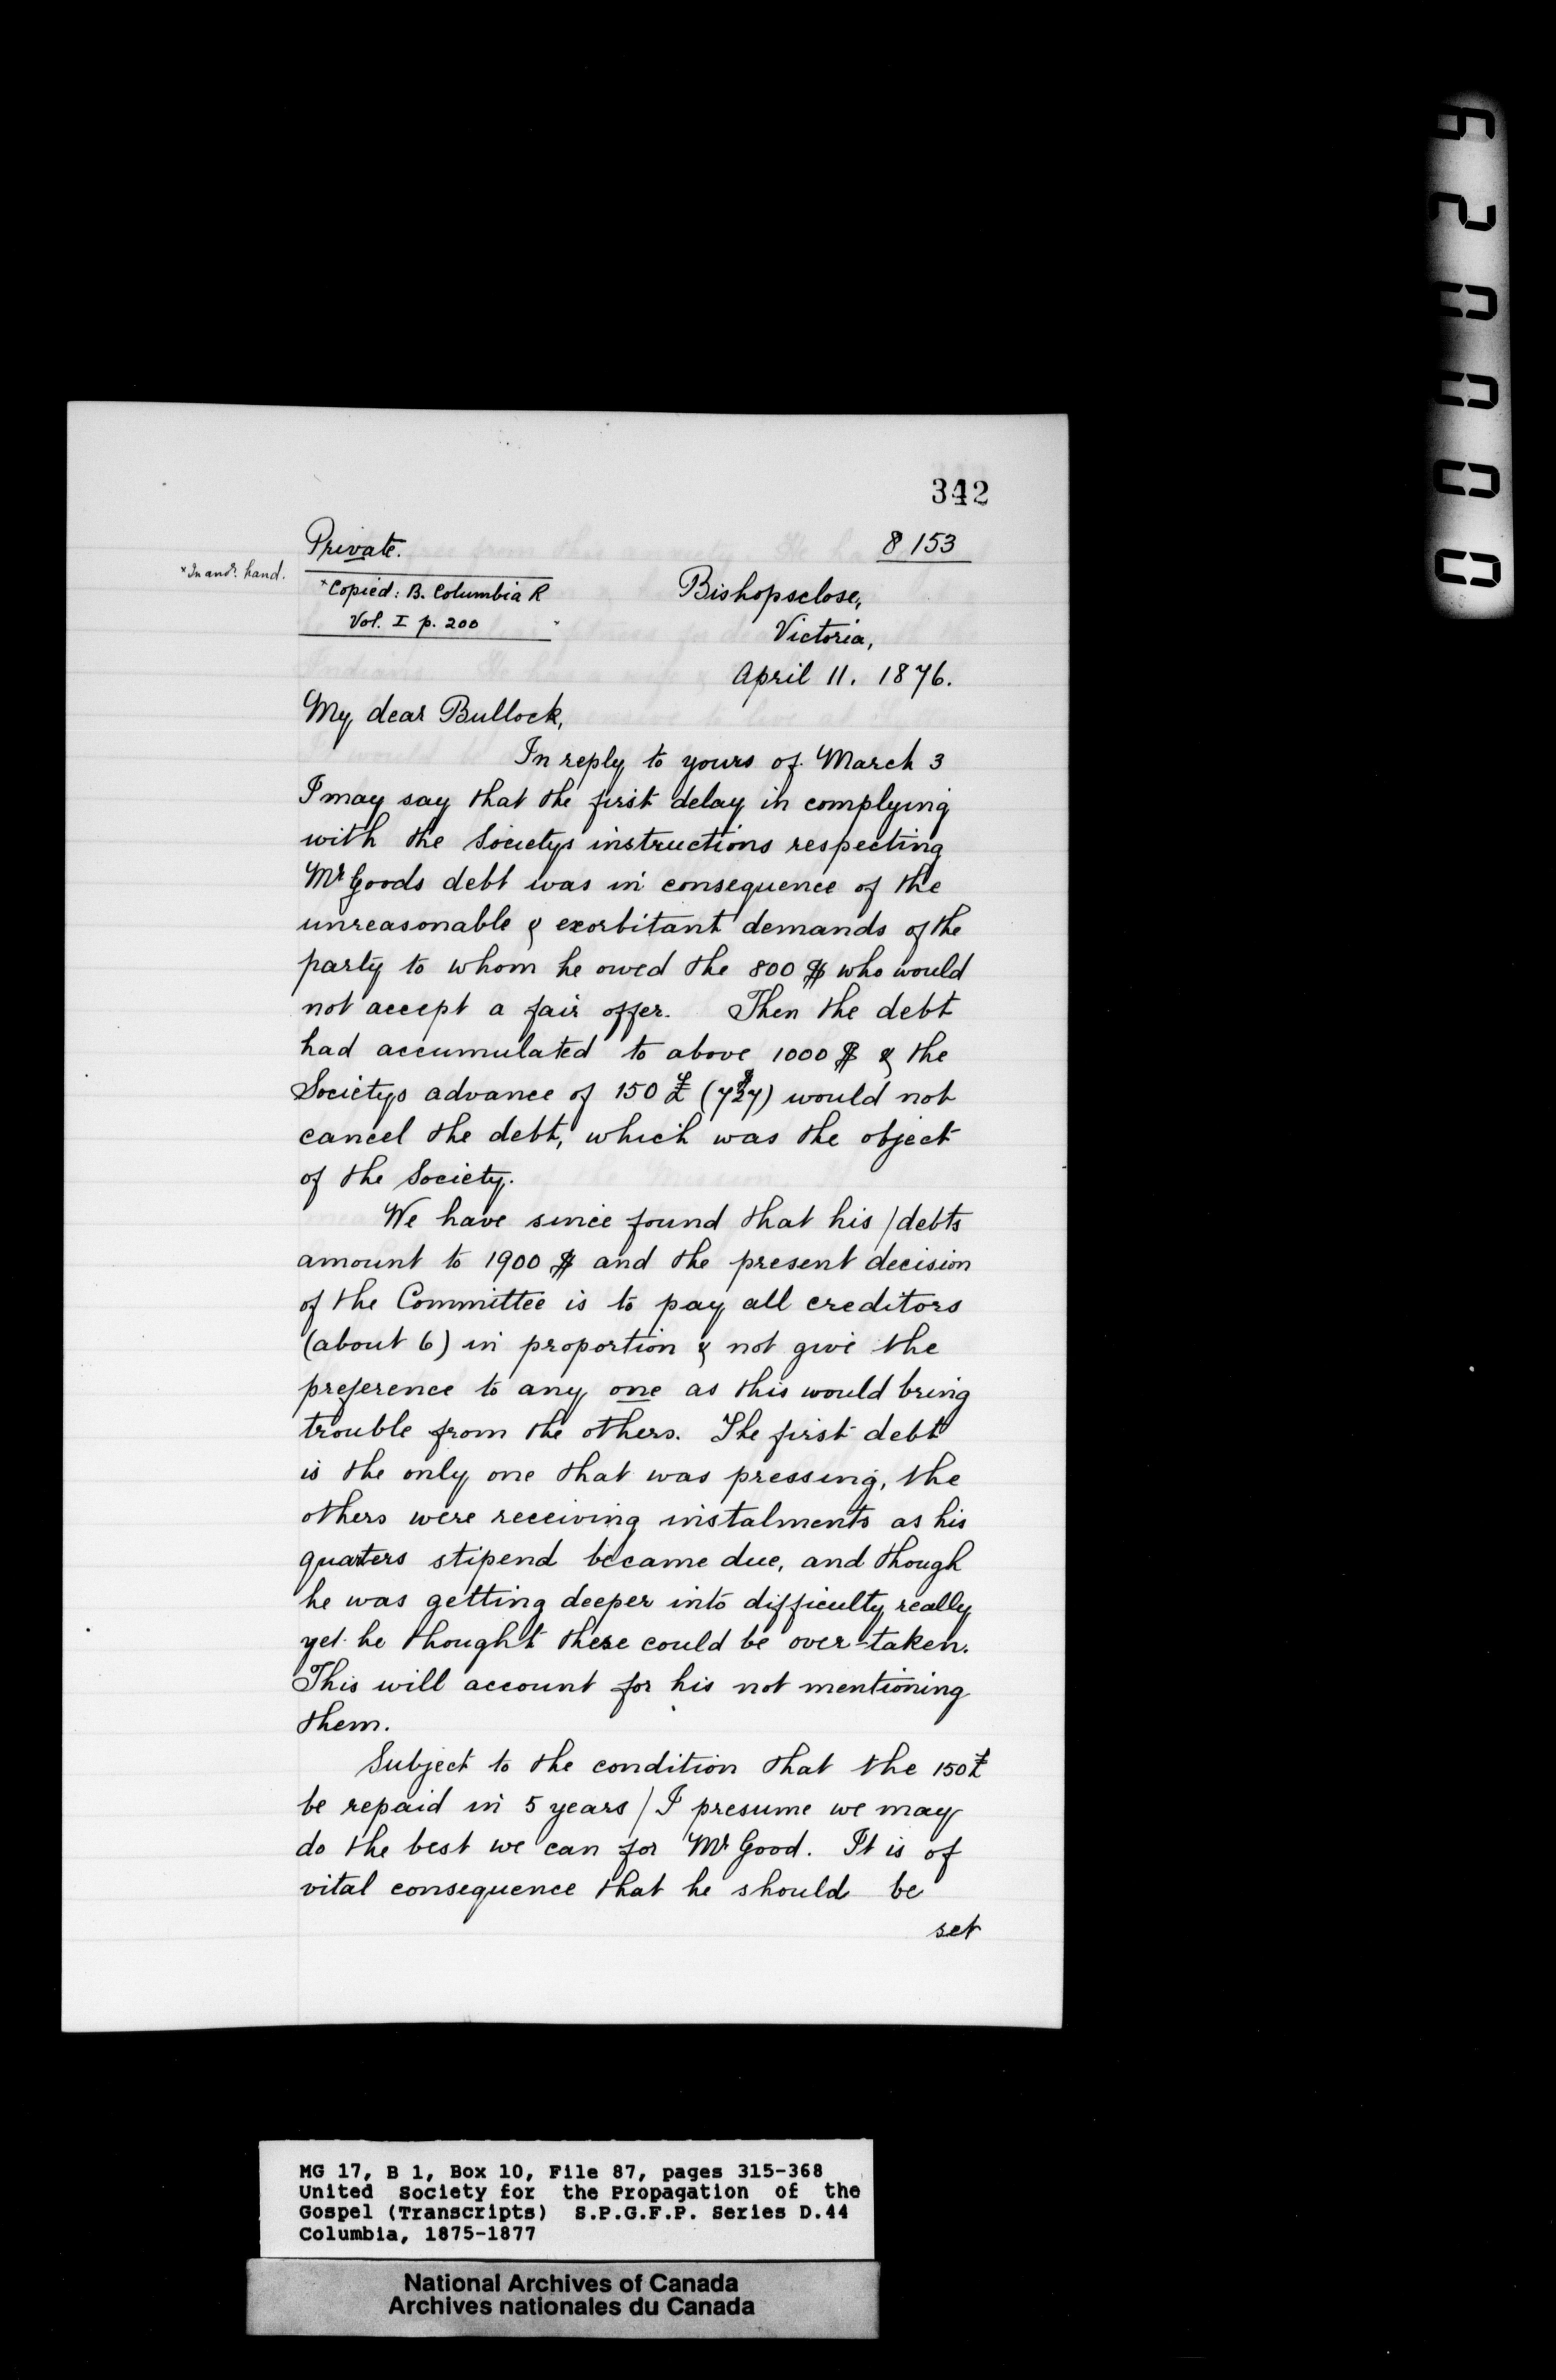 342
Private.
8153
*In anor. hand.
*Copied: B. Columbia R
Vol. I p. 200
Bishopsclose,
Victoria,
April 11. 1876.
My dear Bullock,
In reply to yours of March 3
I may say that the first delay in complying
with the Societys instructions respecting
Mr Goods debt was in consequence of the
unreasonable & exorbitant demands of the
party to whom he owed the 800 $ who would
not accept a fair offer. Then the debt
had accumulated to above 1000 $ & the
Societys advance of 150 £ ($727) would not
cancel the debt, which was the object
of the Society.
We have since found that his / debts
amount to 1900 $ and the present decision
of the Committee is to pay all creditors
(about 6) in proportion & not give the
preference to any one as this would bring
trouble from the others. The first debt
is the only one that was pressing, the
others were receiving instalments as his
quarters stipend became due, and though
he was getting deeper into difficulty really
yet he thought these could be over-taken.
This will account for his not mentioning
them.
Subject to the condition that the 150£
be repaid in 5 years / I presume we may
do the best we can for Mr Good. It is of
vital consequence that he should be
set
MG 17, B 1, Box 10, File 87, pages 315-368
United Society for the Propagation of the
Gospel (Transcripts) S.P.G.F.P. Series D.44
Columbia, 1875-1877
National Archives of Canada
Archives nationales du Canada